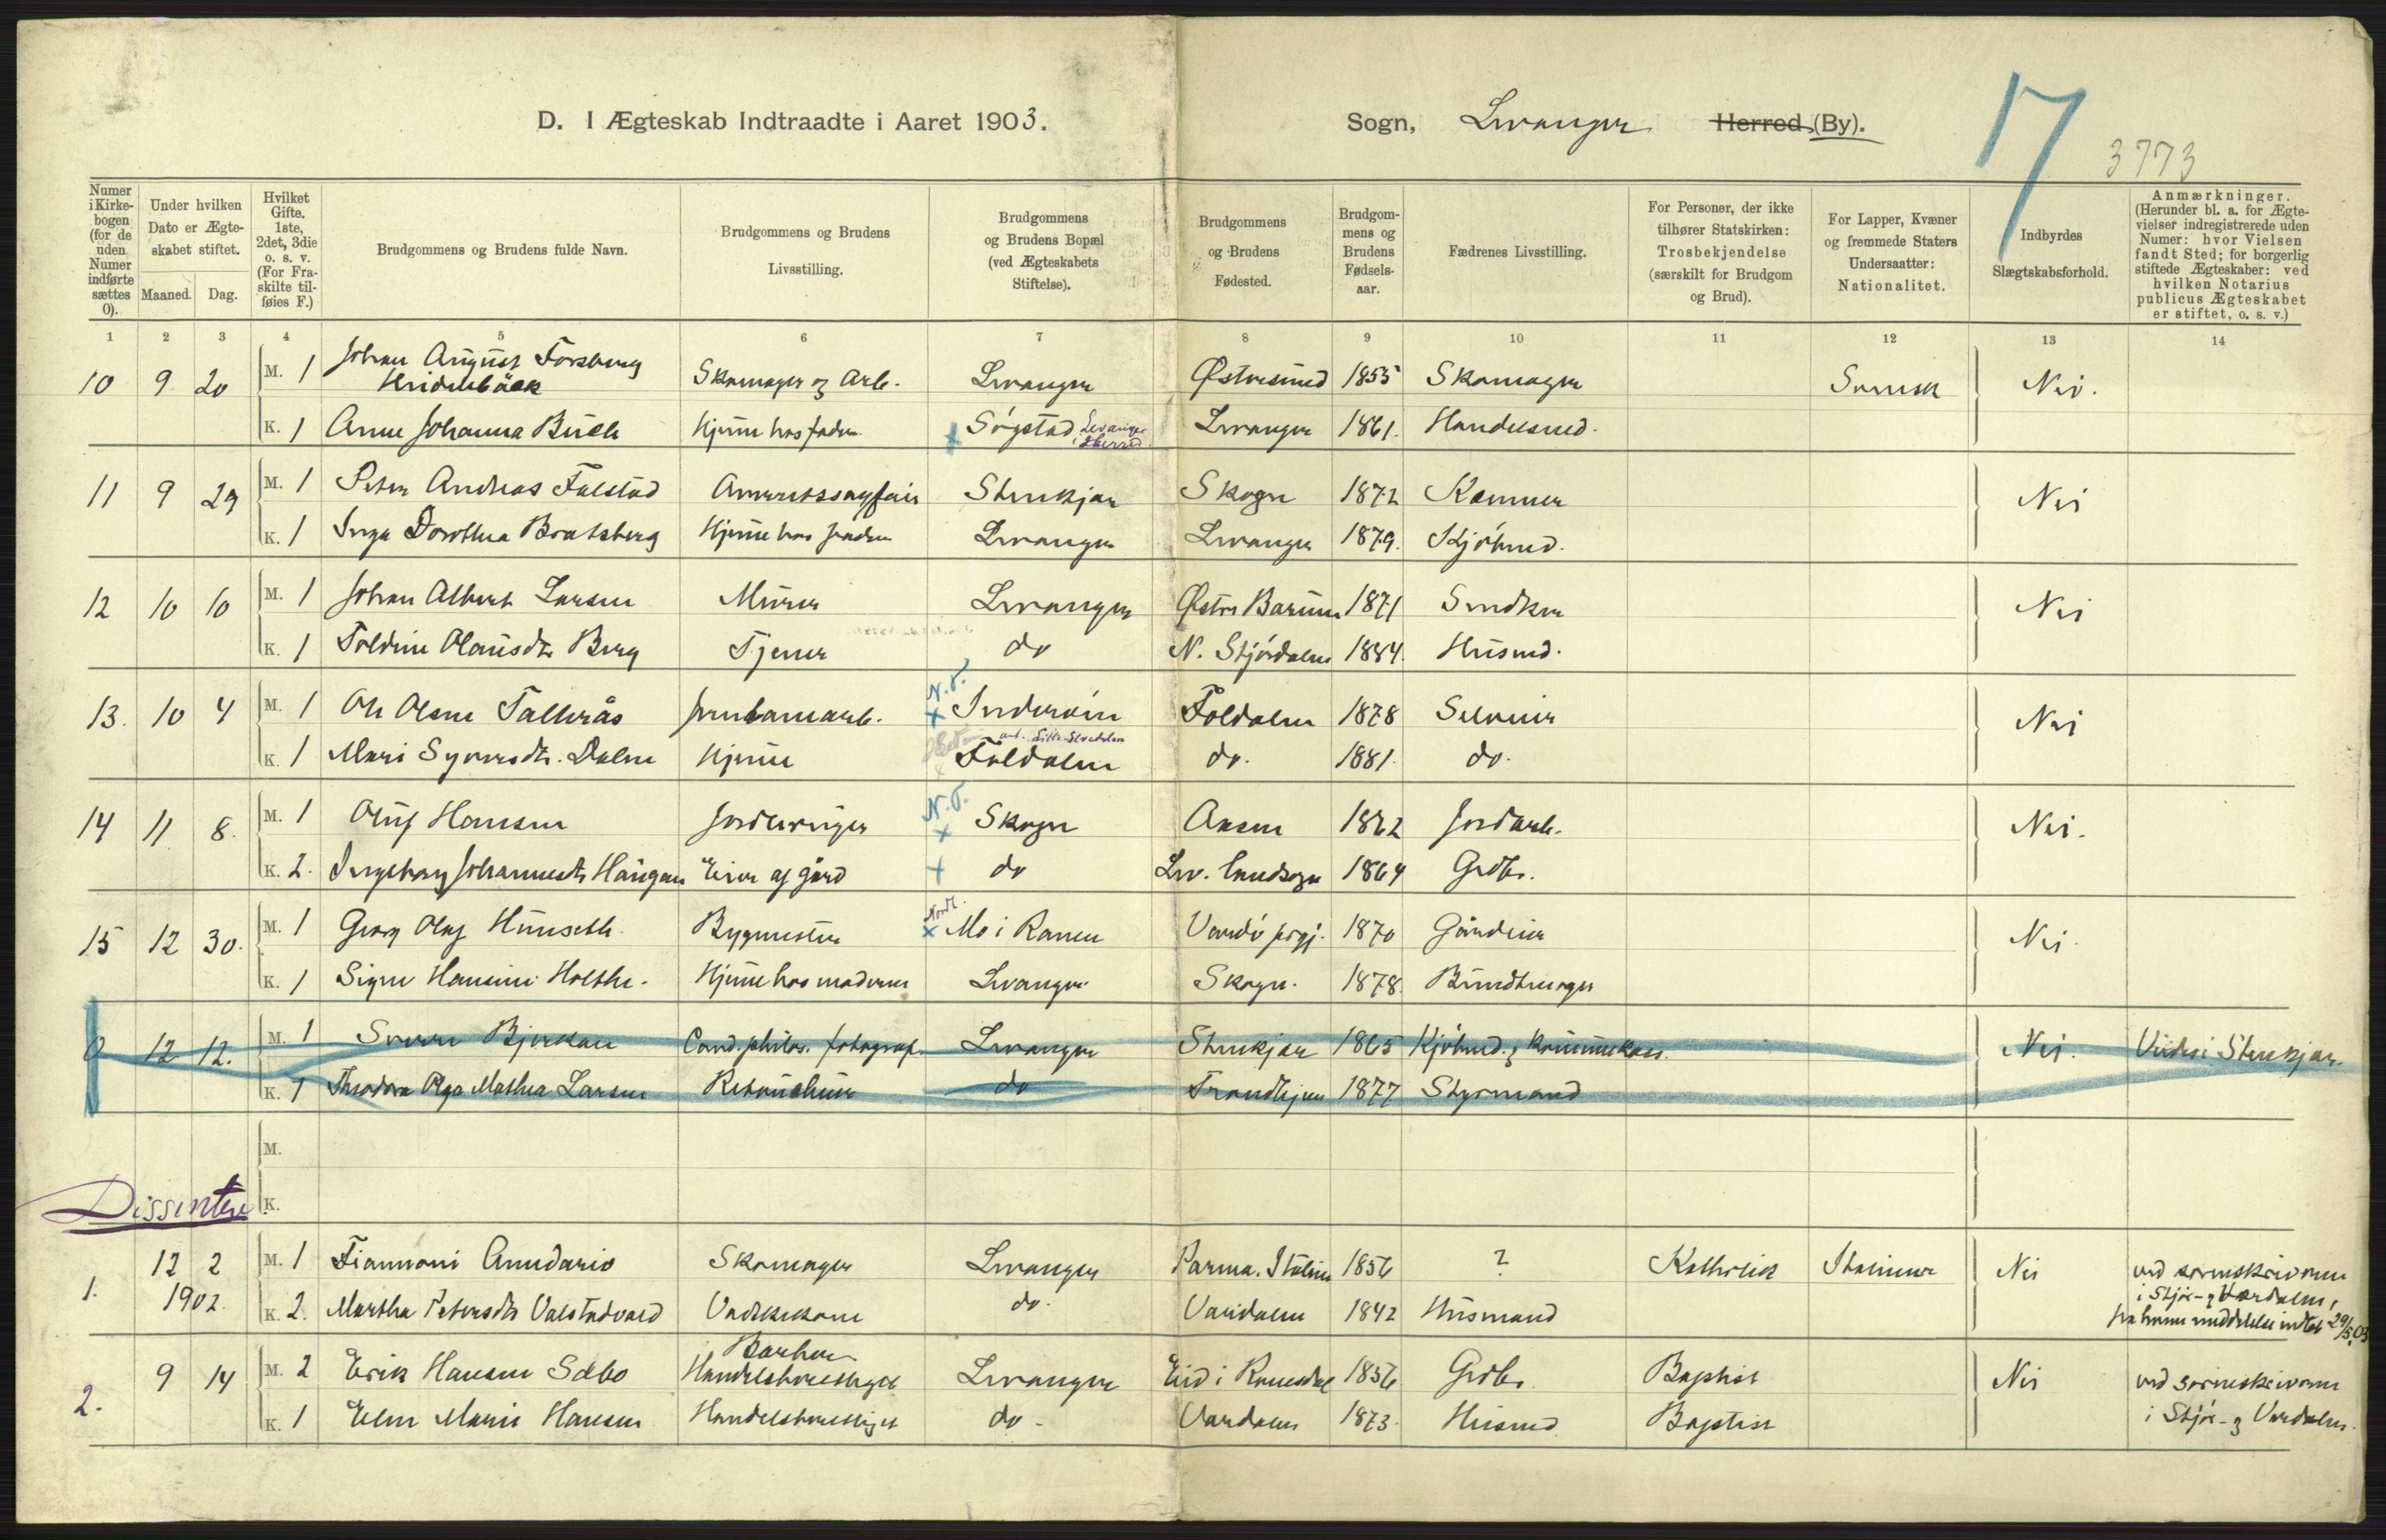 D. I Ægteskab Indtraadte i Aaret 1903. Sogn, Levanger Herred (By).
17
3773
Numer i Kirkebogen (for de uden Numer indførte sættes 0).
Under hvilken Dato er Ægteskabet stiftet.
Maaned. Dag.
Hvilket Gifte. 1ste, 2det, 3die o. s. v. (For Fraskilte tilføies F.)
Brudgommens og Brudens fulde Navn.
Brudgommens og Brudens Livsstilling.
Brudgommens og Brudens Bopæl (ved Ægteskabets Stiftelse).
Brudgommens og Brudens Fødested.
Brudgommens og Brudens Fødselsaar.
Fædrenes Livsstilling.
For Personer, der ikke tilhører Statskirken: Trosbekjendelse (særskilt for Brudgom og Brud).
For Lapper, Kvæner og fremmede Staters Undersaatter: Nationalitet.
Indbyrdes Slægtskabsforhold.
Anmærkninger. (Herunder bl. a. for Ægtevielser indregistrerede uden Numer: hvor Vielsen fandt Sted; for borgerlig stiftede Ægteskaber: ved hvilken Notarius publicus Ægteskabet er stiftet, o. s. v.)
1 2 3 4 5 6 7 8 9 10 11 12 13 14
10 9 20 M. 1 Johan August Forsberg Skomager og Arb. Levanger Østersund 1855 Skomager Svensk Nei.
K. 1 Anne Johanna Buch Hjemme hos faderen Søgstad Levanger Herred Levanger 1861. Handelsmd.
11 9 29 M. 1 Peter Andreas Falstad Steenkjær Skogn 1872 Nei
K. 1 Inga Dorothea Bratsberg Hjemme hos faderen Levanger Levanger 1879. Kjøbmd.
12 10 10 M. 1 Johan Albert Larsen Murer Levanger Østre Bærum 1871 Snedker Nei
K. 1 Foldine Olausdtr Berg Tjener do N. Stjørdalen 1884. Husmd.
13. 10 4 M. 1 Ole Olsen Tallerås Jernbanearb. N.T. Inderøen Foldalen 1878 Selveier Nei
K. 1 Mari Syversdtr. Dalen Hjemme Foldalen do. 1881. do.
14 11 8. M. 1 Oluf Hansen N.T. Skogn Aasen 1862 Jordarb. Nei.
K. 2. Ingeborg Johannesdtr Haugan Eier af gård do Lev. landsogn 1864 Grdbr.
15 12 30. M. 1 Georg Olaf Hunseth. Bygmester Nordl. Mo i Ranen 1870 Gårdeier Nei.
K. 1 Signe Hansine Holthe. Hjemme hos moderen Levanger Skogn. 1878. Bundtmager
0 12 12. M. 1 Sverre Bjerkan Cand. philos. fotograf. Levanger Stenkjær 1865 Kjøbmd. & Nei. Viede i Stenkjær.
K. 1 Theodora Olga Mathea Larsen do Trondhjem 1877 Styrmand
M.
K.
Dissentere
1. 12 2 M. 1 Skomager Levanger Parma. Italien 1856 ? Katholik Italiener Nei ved sorenskriveren
1902. K. 2. Martha Petersdtr Valstadvald Vadskekone do. Værdalen 1842 Husmand i Stjør- & Værdalen,
fra hvem meddelelse indløb 29/5.03
2. 9 14 M. 2 Erik Hansen Sæbo Barber Handelsbestyrer Levanger Eid i Romsdal 1856 Grdbr. Baptist Nei ved sorenskriveren
K. 1 Elen Marie Hansen do. Værdalen 1873. Husmd Baptist i Stjør- & Værdalen.